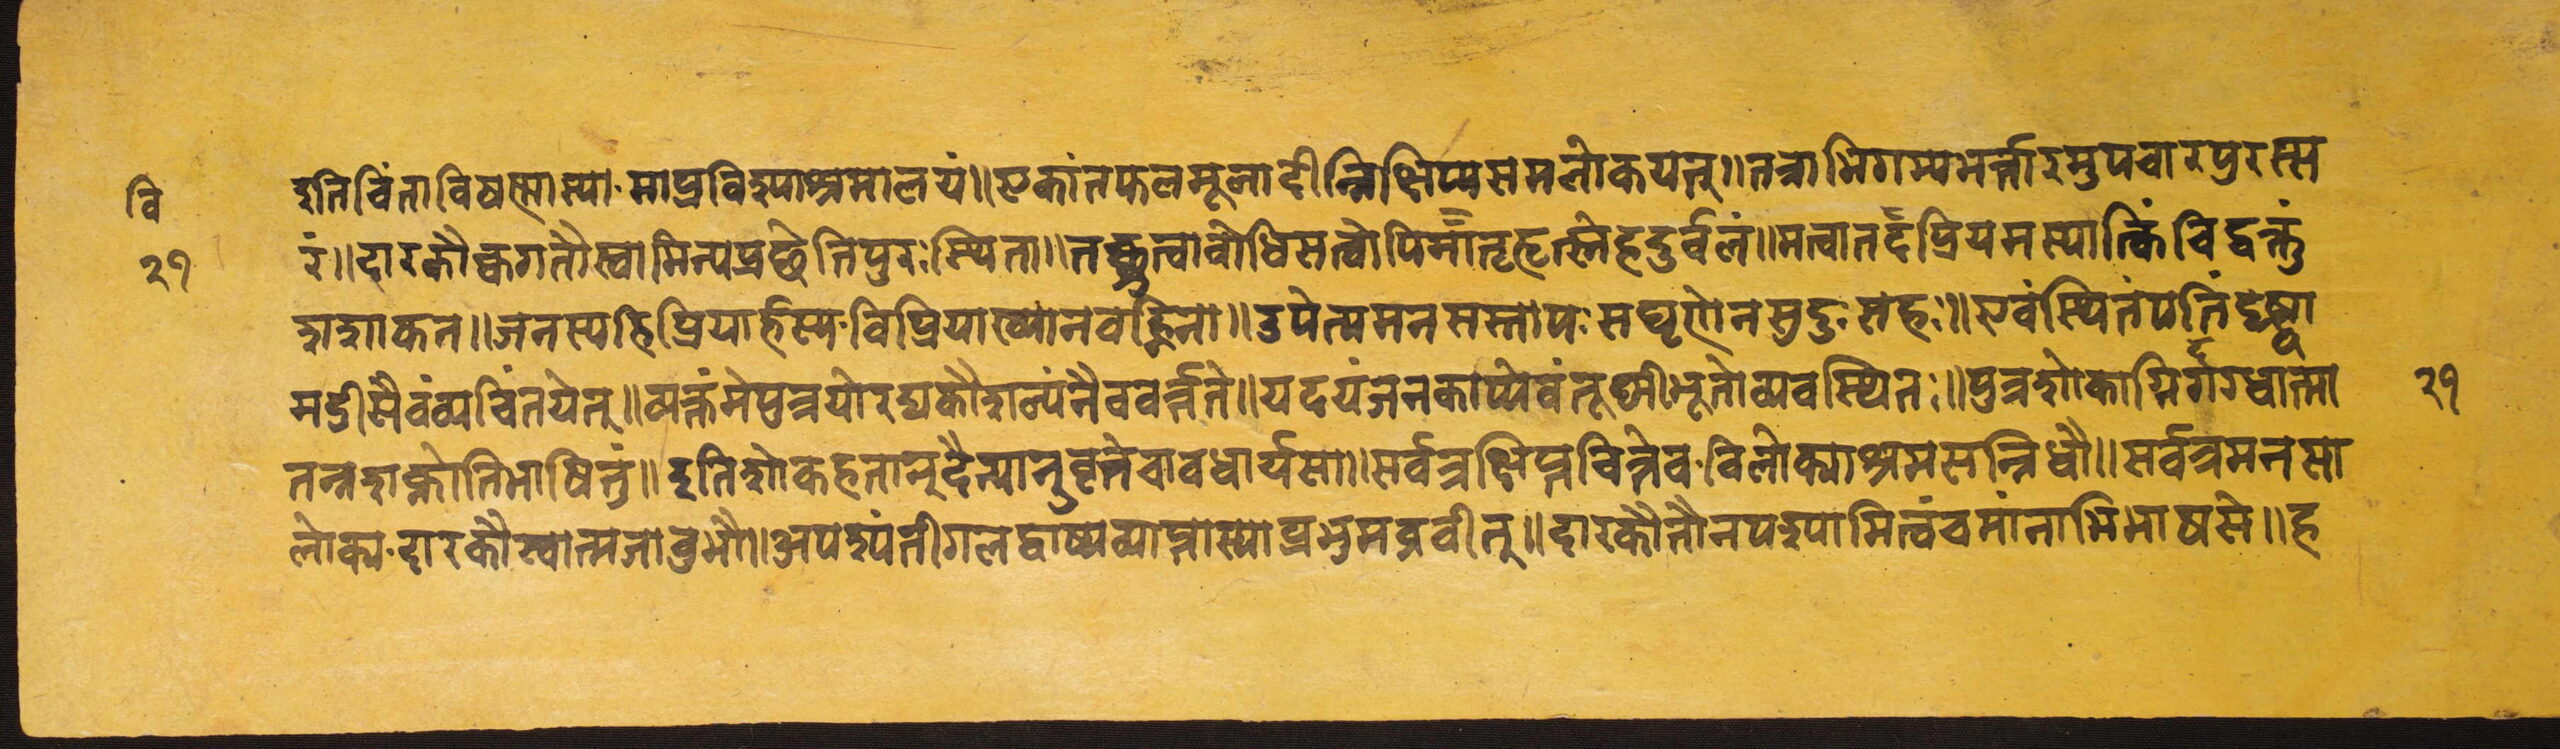 वि इति चिंता विषण्णास्या. साप्रविश्याश्रमालयं॥ एकांत फलमूलादी न्निक्षिप्य समलोकयत्॥ तत्राभिगम्य भर्त्तारमुपचारपुरस्स
२१ रं॥ दारकौ क्व गतौ स्वामिन्यप्रछेति पुरः स्थिता॥ तच्छ्रुत्वा वोधिसत्वोपि मातृहृत्स्नेहदुर्वलं॥ मत्वा तदप्रियमस्या त्किंचिद्वक्तुं
शशाक न॥ जनस्य हि प्रियार्हस्य. विप्रियाख्यानवह्निना॥ उपेत्य मनसस्तापः सघृणेन सुदुःसहः॥ एवं स्थितं पतिं दृष्ट्वा
मद्री सैवं व्यचिंतयेत्॥ व्यक्तं मे पुत्रयोरद्य कौशल्यं नैव वर्त्तते॥ यदयं जनकाप्येवं तूष्णीभूतो व्यवस्थितः॥ पुत्रशोकाग्नि र्दग्धात्मा २१
तन्नशक्नोति भाषितुं॥ इति शोकहतात् दैन्यानुवृत्ते चावधार्य सा॥ सर्वत्र क्षिप्तचित्तेव. विलोक्याश्रमसन्निधौ॥ सर्वत्र मनसा
लोक्य. दारकौ स्वात्मजावुभौ॥ अपश्यंती गलद्वाष्पव्याप्तास्या प्रभुमव्रवीत्॥ दारकौ तौ न पश्यामि त्वं च मां नाभिभाषसे॥ ह